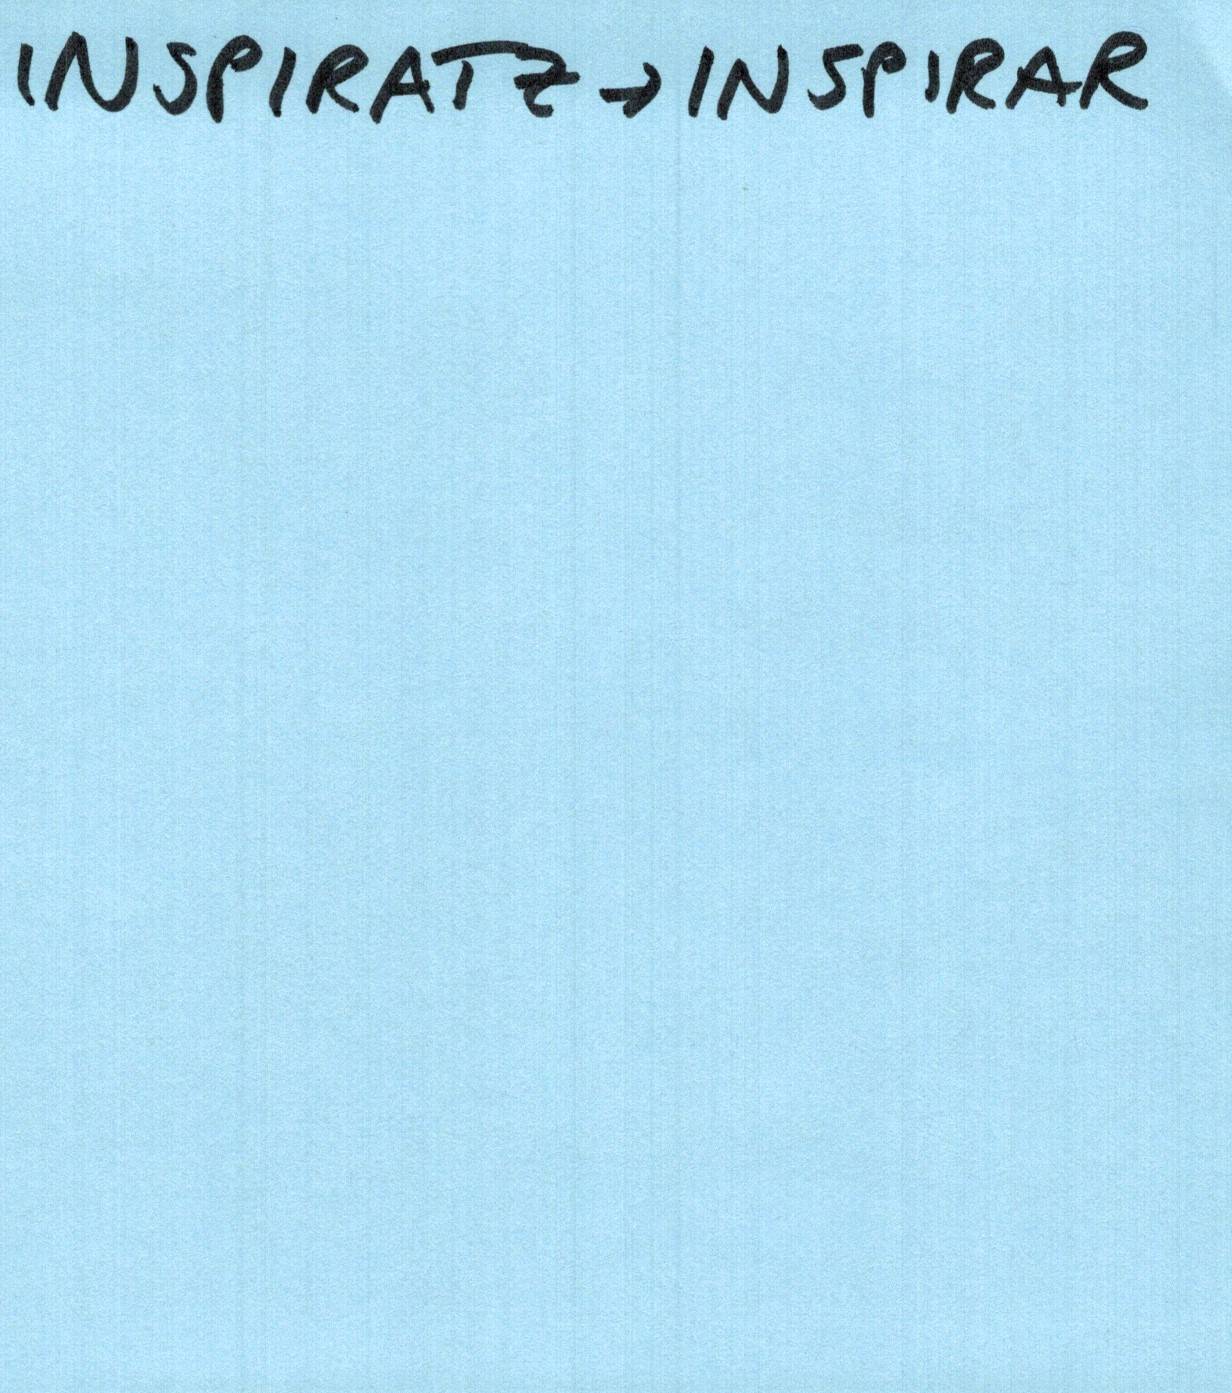 INSPIRATZ → INSPIRAR